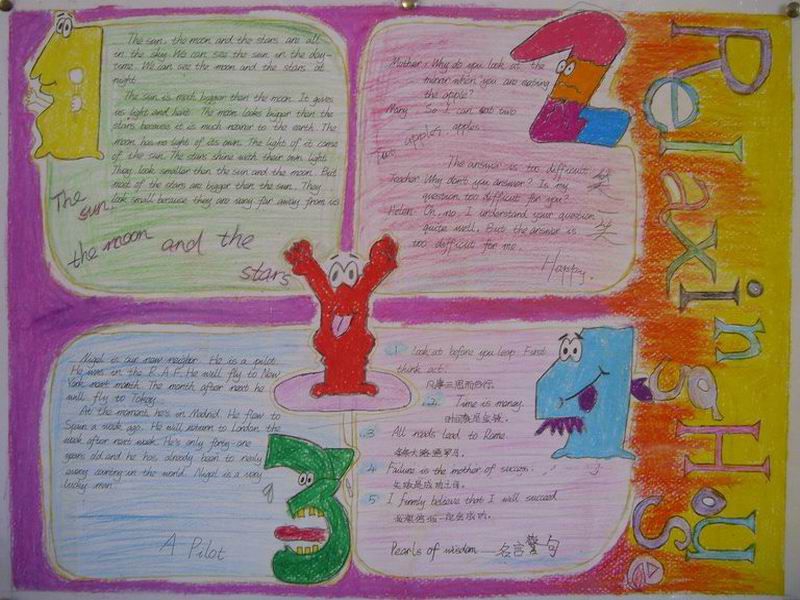 The sun, the moon and the stars are all
in the sky. We can see the sun in the day-
time. We can see the moon and the stars at
night.
The sun is much bigger than the moon. It gives
us light and heat. The moon looks bigger than the
stars because it is much nearer to the earth. The
moon has no light of its own. The light of it came
of the sun. The stars shine with their own light.
They look smaller than the sun and the moon. But
most of the stars are bigger than the sun. They
look small because they are very far away from us
The sun,
the moon and the
stars
Mother: Why do you look at the
mirror when you are eating
the apple?
Mary: So I can eat two
apples.
Two apples
The answer is too difficult
Teacher: Why don't you answer? Is my
question too difficult for you?
Helen: Oh, no. I understand your question
quite well. But the answer is
too difficult for me.
Happy.
Nigel is our new neighbor. He is a pilot.
He was in the R.A.F. He will fly to New
York next month. The month after next he
will fly to Tokoy.
At the moment, he's in Madrid. He flew to
Spain a week ago. He will return to London the
week after next week. He's only forty-one
years old and he has already been to nealy
every country in the world. Nigel is a very
lucky man.
A Pilot
1 Look at before you leap. First
think act.
凡事三思而后行。
2. Time is money.
时间就是金钱。
3 All roads lead to Rome.
条条大路通罗马。
4 Failure is the mother of success.
失败是成功之母。
5 I firmly believe that I will succeed
我坚信我一定会成功。
Pearls of wisdom——名言警句
Relaxing House